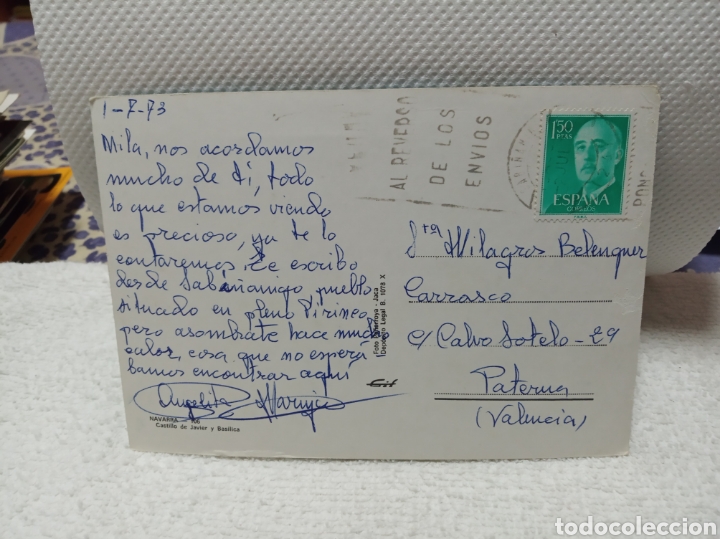 1-7-73
Mila, nos acordamos
mucho de ti, todo
lo que estamos viendo
es precioso, ya te lo
contaremos. Te escribo
desde Sabiñanigo pueblo
situado en pleno Pirineo
pero asombrate hace mucho
calor, cosa que no espera
bamos encontrar aqui
Angelita Maruja
NAVARRA 106
Castillo de Javier y Basílica
Jaca
Depósito Legal B. 1078 X
AL REVERSO
DE LOS
ENVIOS
PONG
1,50
PTAS
ESPAÑA
CORREOS
Srta Milagros Belenguer
Carrasco
c/ Calvo Sotelo - 29
Paterna
(Valencia)
todocoleccion